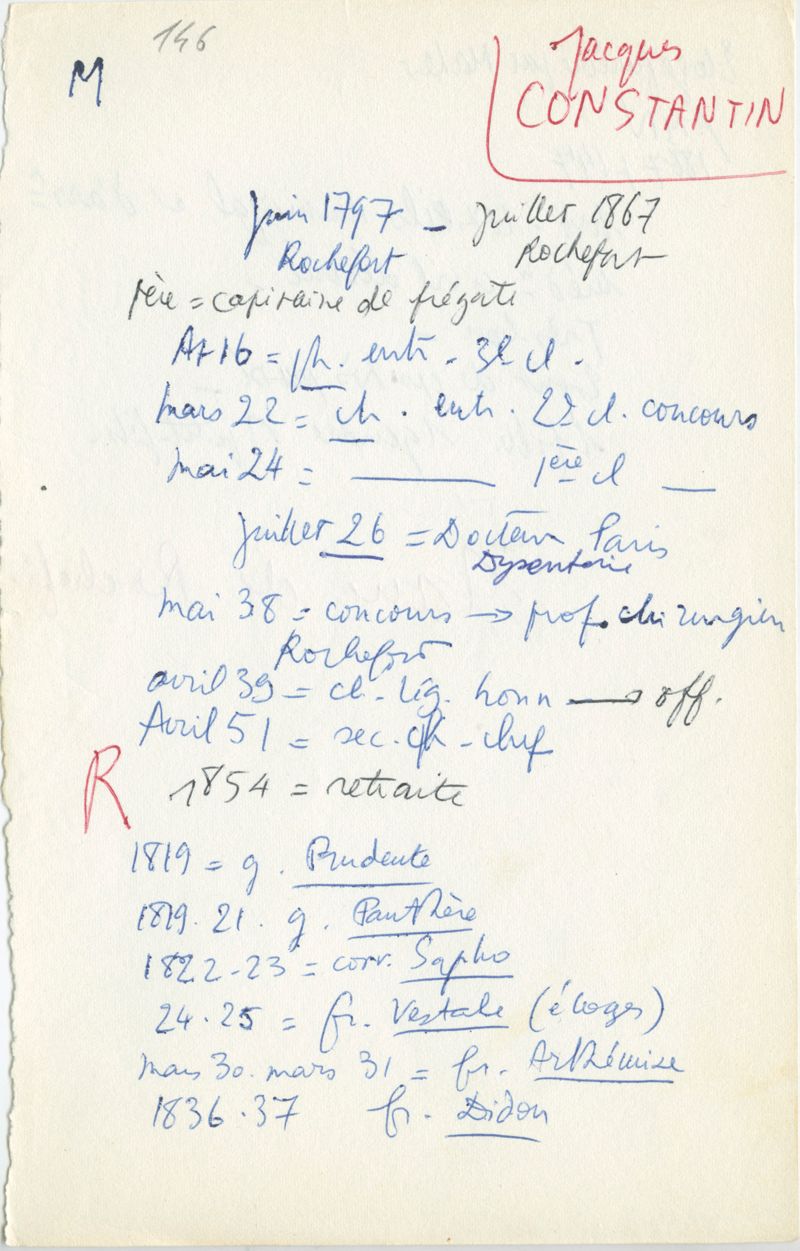 146
M
Jacques
CONSTANTIN
Juin 1797 - Juillet 1867
Rochefort Rochefort
Père = capitaine de frégate
16 = ph. entr. 3e cl.
mars 22 = ch. entr. 2e cl. concours
mai 24 = ——— 1ère cl —
Juillet 26 = Docteur Paris
Dysenterie
mai 38 = concours → prof. chirurgien
Rochefort
avril 39 = ch. lég. honn → off.
Avril 51 = sec. ch - chef
R
1854 = retraite
1819 = g. Prudente
1819.21. g. Panthère
1822-23 = corr. Sapho
24.25 = fr. Vestale (éloges)
mars 30. mars 31 = fr. Arthémise
1836.37 fr. Didon